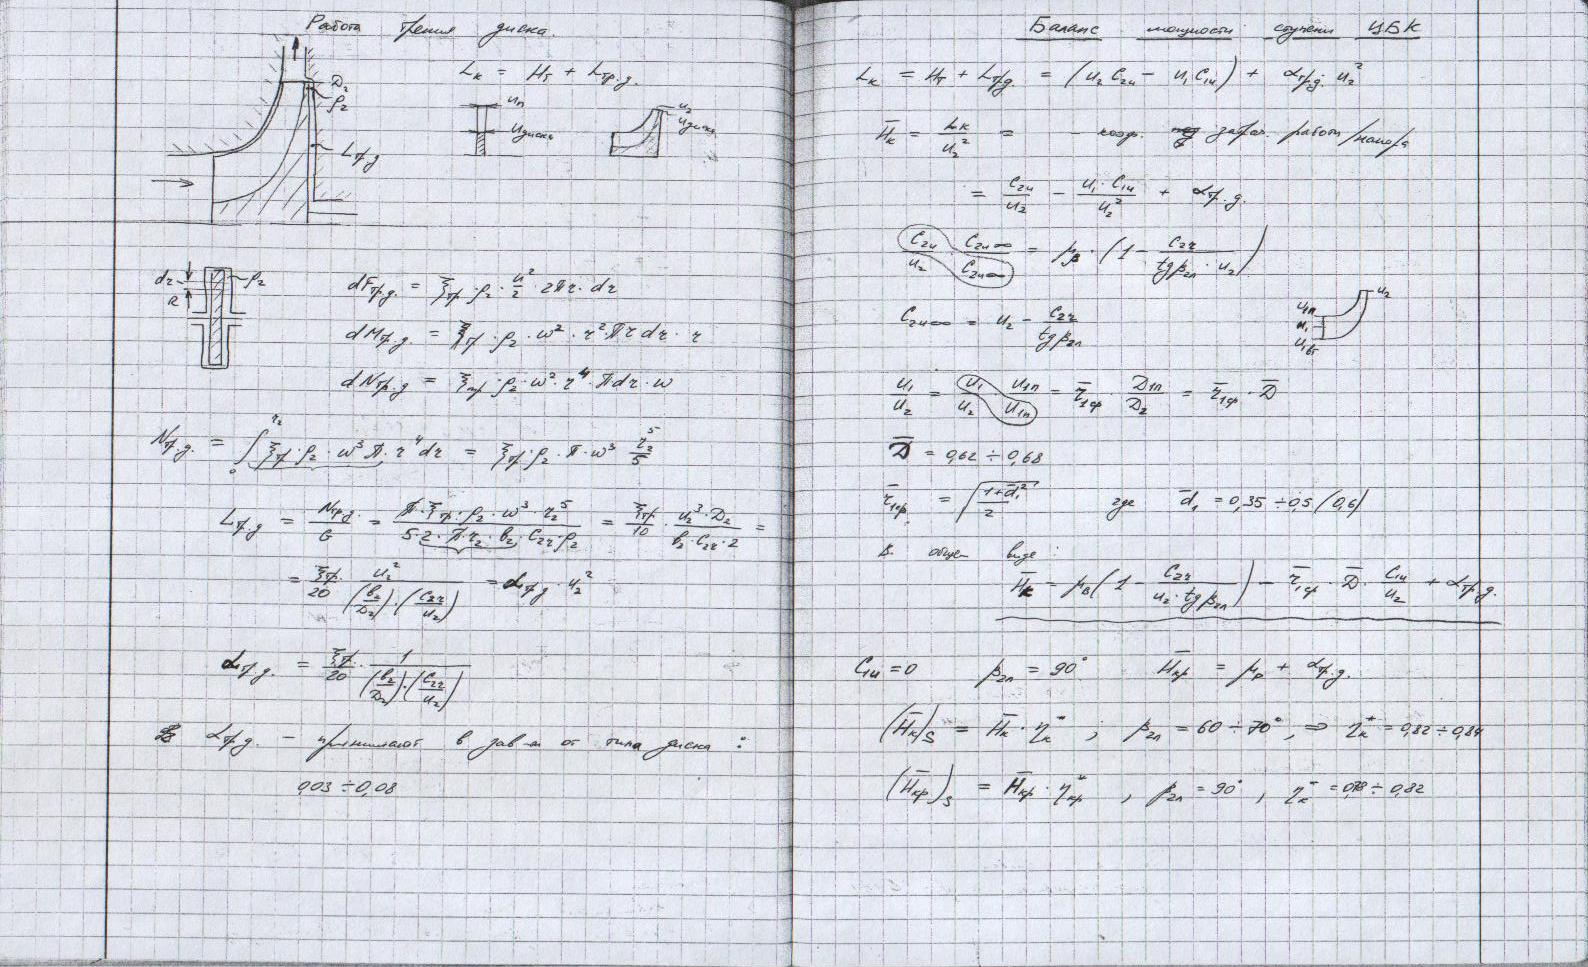 Работа трения диска.
Lк = Hт + Lтр.д.
D₂
ρ₂
Lтр.д
uп
uдиска
u₂
uдиска
dr
R
ρ₂
dFтр.д. = ξтр·ρ₂·u²/2·2πr·dr
dMтр.д. = ξтр·ρ₂·w²·r²·πr dr·r
dNтр.д = ξтр·ρ₂·w²·r⁴·πdr·w
Nтр.д. = ∫₀^r₂ ξтр·ρ₂·w³·π·r⁴dr = ξтр·ρ₂·π·w³ r₂⁵/5
Lтр.д = Nтр.д./G = π·ξтр·ρ₂·w³·r₂⁵/(5·2·π·r₂·b₂·C₂r·ρ₂) = ξтр/10 · u₂³·D₂/(b₂·C₂r·2) =
= ξтр/20 · u₂²/((b₂/D₂)·(C₂r/u₂)) = αтр.д·u₂²
αтр.д. = ξтр/20 · 1/((b₂/D₂)·(C₂r/u₂))
αтр.д. – принимают в зав-ти от типа диска:
0,03 ÷ 0,08
Баланс мощности ступени ЦБК
Lк = Hт + Lтр.д. = (u₂C₂u – u₁C₁u) + αтр.д. u₂²
H̄к = Lк/u₂² = – коэф. затрач. работы/напора
= C₂u/u₂ – u₁·C₁u/u₂² + αтр.д.
C₂u/u₂ · C₂u∞/C₂u∞ = μв·(1 – C₂r/(tgβ₂л·u₂))
C₂u∞ = u₂ – C₂r/tgβ₂л
u₂
u₁п
u₁
u₁вт
u₁/u₂ = u₁/u₂ · u₁п/u₁п = r̄₁ср · D₁п/D₂ = r̄₁ср · D̄
D̄ = 0,62 ÷ 0,68
r̄₁ср. = √((1+d̄₁²)/2) где d̄₁ = 0,35 ÷ 0,5 (0,6)
В общем виде:
H̄к = μв(1 – C₂r/(u₂·tgβ₂л)) – r̄₁ср · D̄ · C₁u/u₂ + αтр.д.
C₁u = 0 β₂л = 90° H̄кр = μр + αтр.д.
(H̄к)s = H̄к·η*к ; β₂л = 60 ÷ 70°, ⇒ η*к = 0,82 ÷ 0,84
(H̄кр)s = H̄кр·η*кр , β₂л = 90° , η*к = 0,78 ÷ 0,82